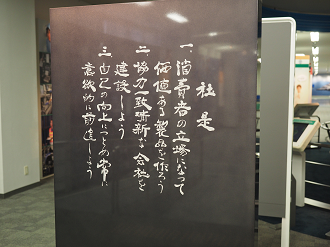 社是
一、消費者の立場になって
価値ある製品を作ろう
二、協力一致斬新な会社を
建設しよう
三、自己の向上につとめ常に
意欲的に前進しよう